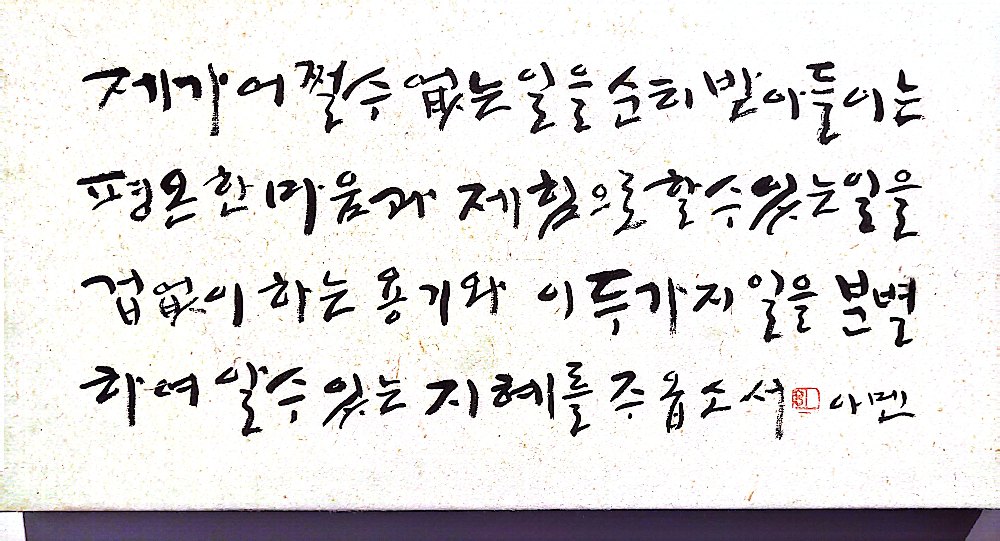 제가 어쩔수 없는 일을 순히 받아들이는
평온한 마음과 제힘으로 할수있는 일을
겁없이 하는 용기와 이 두가지 일을 분별
하여 알수있는 지혜를 주옵소서 아멘